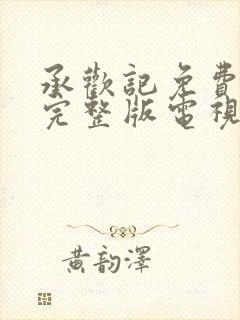 承歡記免費
完整版電視
黃韵澤